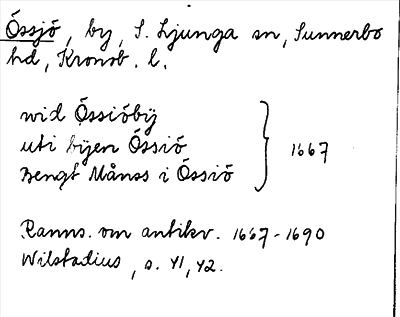 Össjö, by, S. Ljunga sn, Sunnerbo
hd, Kronob. l.
wid Össiöbÿ
uti bijen Össiö
Bengt Månss i Össiö
1667
Ranns. om antikv. 1667-1690
Wilstadius, s. 41, 42.